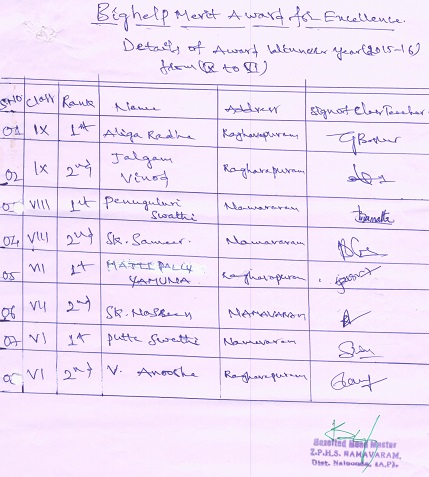 Bighelp Merit Award for Excellence.
Details of Award Winner year (2015-16)
from (IX to VI)
S.No Class Rank Name Address Sign of Class Teacher
01 IX 1st Radha Raghavapuram
02 IX 2nd Jalgam Vinod Raghavapuram
03 VIII 1st Penuguluri Swathi Namavaram
04 VIII 2nd Sk. Sameer. Namavaram
05 VII 1st MATTEPALLY YAMUNA Raghavapuram
06 VII 2nd Sk. Nasreen NAMAVARAM
07 VI 1st Putta Swathi Namavaram
08 VI 2nd V. Anoosha Raghavapuram
Gazetted Head Master
Z.P.H.S. NAMAVARAM,
Dist. Nalgonda, (A.P).